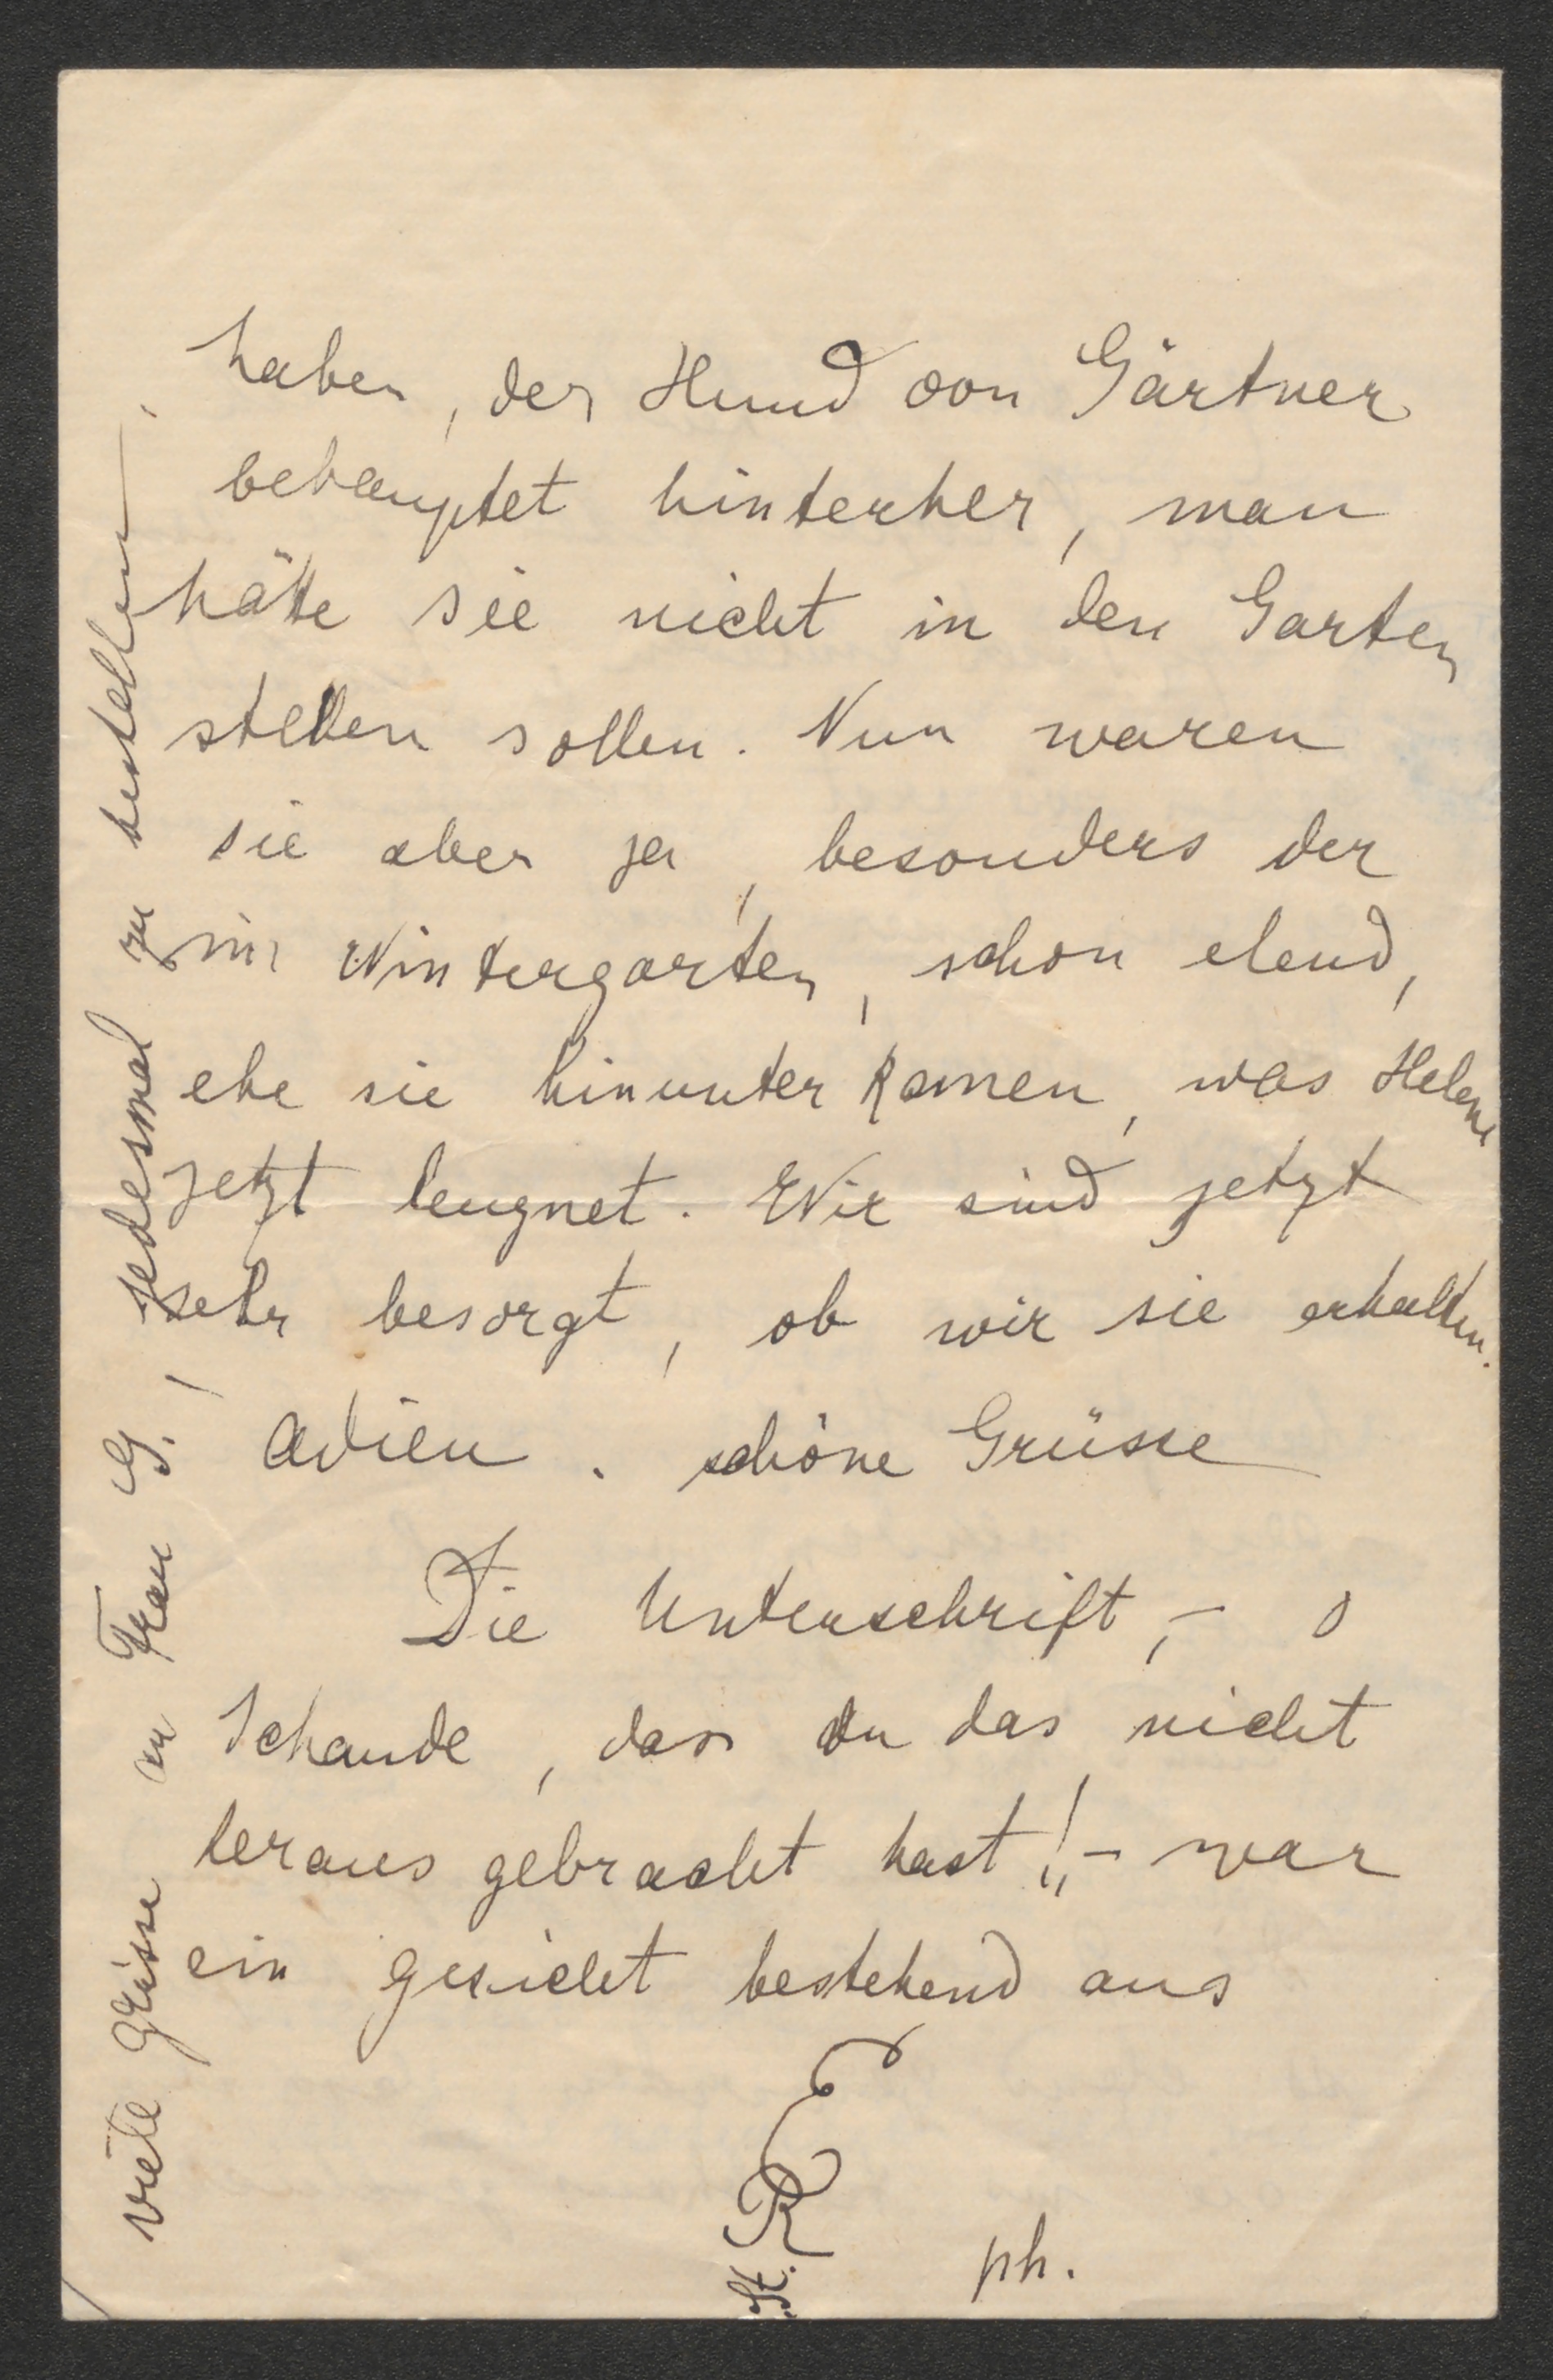 haben, der Hund von Gärtner
behauptet hinterher, man
hätte sie nicht in den Garten
stellen sollen. Nun waren
sie aber ja, besonders der
im Wintergarten, schon elend,
ehe sie hinunter kamen, was Helene
jetzt leugnet. Wir sind jetzt
sehr besorgt, ob wir sie erhalten.
Adieu. schöne Grüsse
Die Unterschrift, - o
Schande, dass du das nicht
heraus gebracht hast!, - war
ein gesicht bestehend aus
E
R
St.
ph.
viele grüsse an Frau G., jedesmal zu bestellen.